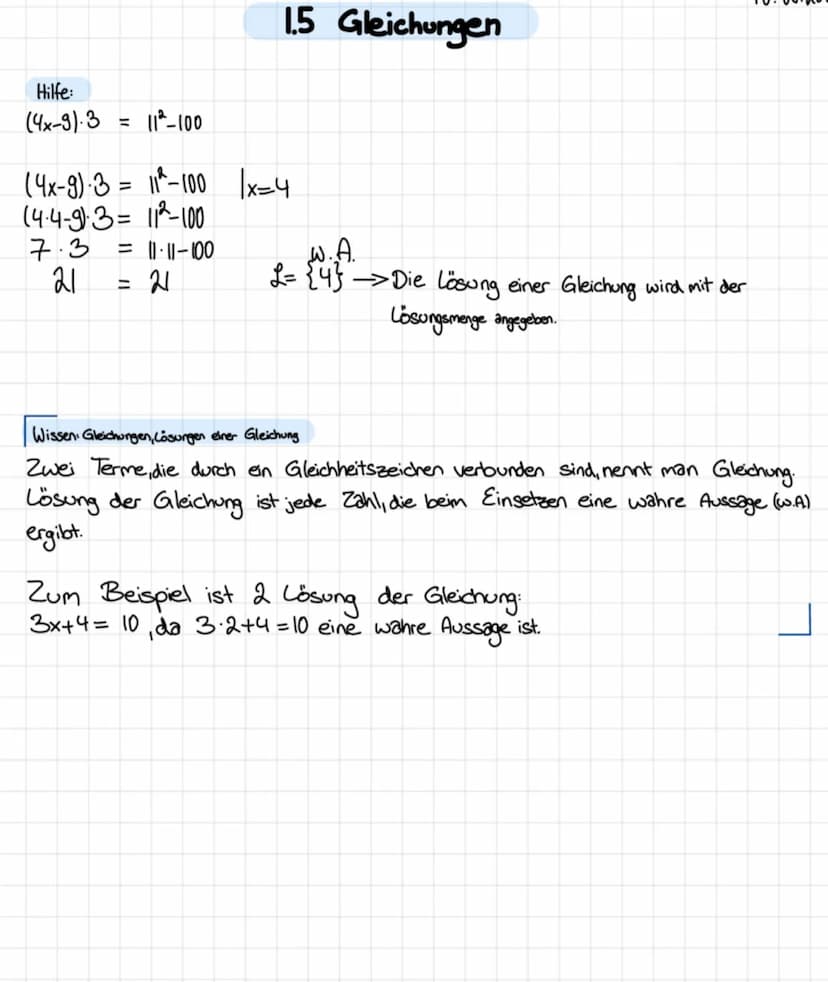 1.5 Gleichungen
Hilfe:
(4x-9)·3 = 11²-100
(4x-9)·3 = 11²-100 |x=4
(4·4-9)·3 = 11²-100
7·3 = 11·11-100
w.A.
21 = 21 L= {4} → Die Lösung einer Gleichung wird mit der
Lösungsmenge angegeben.
Wissen: Gleichungen, Lösungen einer Gleichung
Zwei Terme, die durch ein Gleichheitszeichen verbunden sind, nennt man Gleichung.
Lösung der Gleichung ist jede Zahl, die beim Einsetzen eine wahre Aussage (w.A)
ergibt.
Zum Beispiel ist 2 Lösung der Gleichung:
3x+4 = 10, da 3·2+4 = 10 eine wahre Aussage ist.